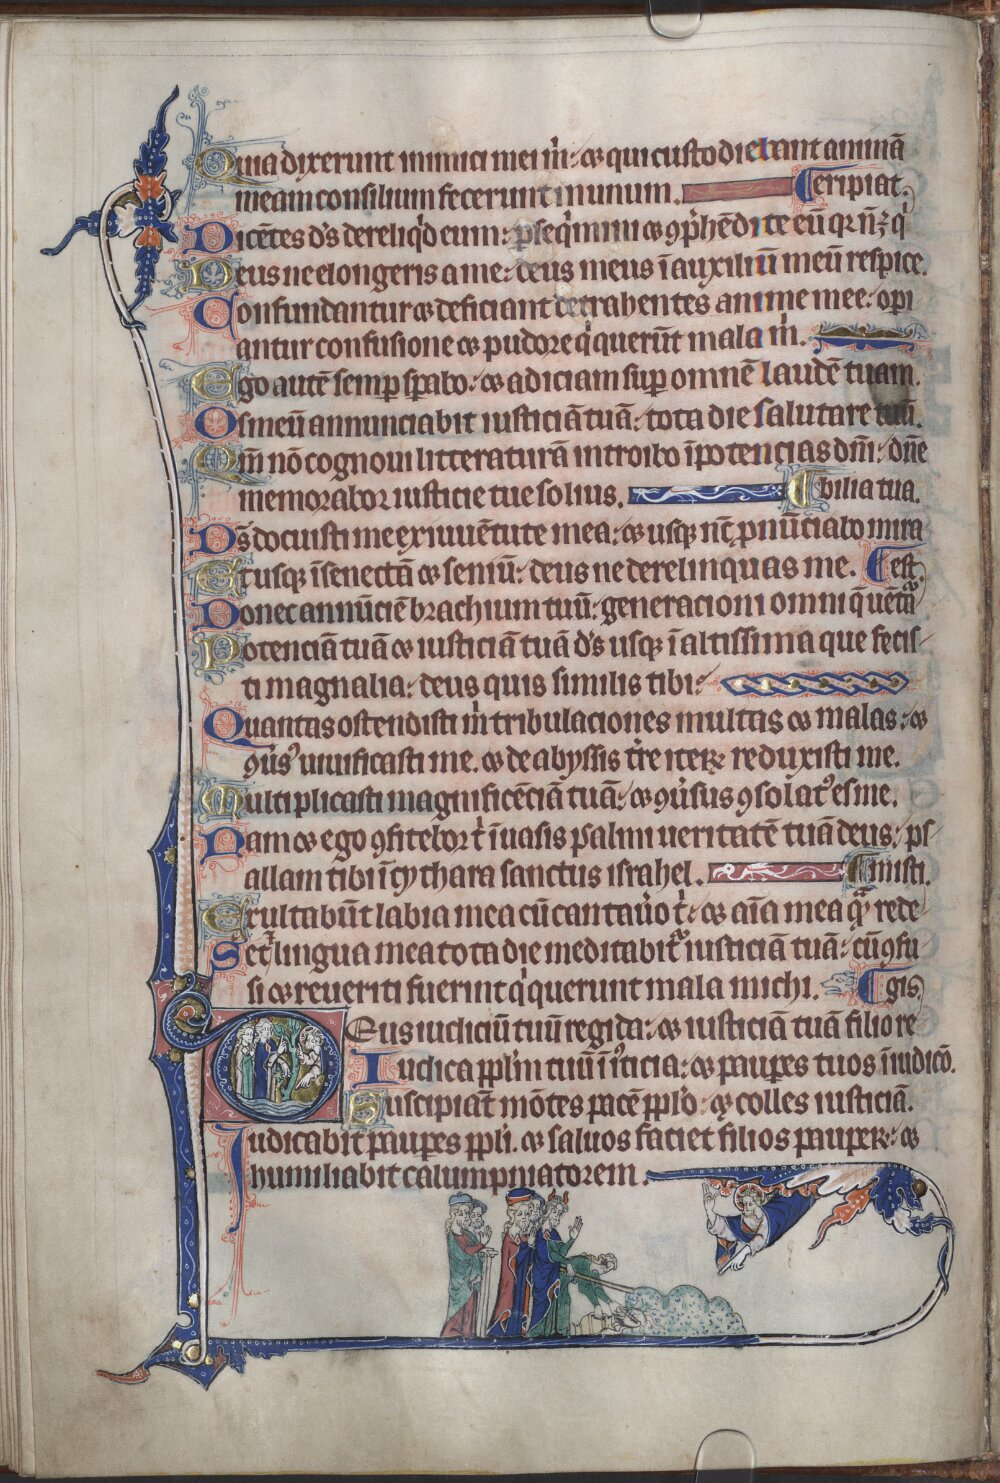 Quia dixerunt inimici mei m̄: ⁊ qui custodiebant animā
meam consilium fecerunt in unum. ⸿eripiat.
Dicētes d̄s dereliq̇d eum: ꝑseq̇mini ⁊ ꝯp̄hēdite eū qꝛ nō ē q̇
Deus ne elongeris a me: deus meus ī auxiliū meū respice.
Confundantur ⁊ deficiant detrahentes anime mee: opi
antur confusione ⁊ pudore q̇ querūt mala m̄.
Ego autē semꝑ sꝑabo: ⁊ adiciam suꝑ omnē laudē tuam.
Os meū annunciabit iusticiā tuā: tota die salutare tuū.
Qm̄ nō cognoui litteraturā introibo ī potencias dn̄i: dn̄e
memorabor iusticie tue solius. ⸿bilia tua.
D̄s docuisti me ex iuuētute mea: ⁊ usqꝫ nc̄ ꝓnūciabo mira
Et usqꝫ ī senectā ⁊ seniū: deus ne derelinquas me. ⸿est.
Donec annūciē brachium tuū: generacioni omni q̄ uētᵃ
Potenciā tuā ⁊ iusticiā tuā d̄s usqꝫ ī altissima que fecis
ti magnalia: deus quis similis tibi:
Quantas ostendisti m̄ tribulaciones multas ⁊ malas: ⁊
ꝯūs' uiuificasti me. ⁊ de abyssis t̄re iteꝝ reduxisti me.
Multiplicasti magnificēciā tuā: ⁊ ꝯūsus ꝯsolat᷒ es me.
Nam ⁊ ego ꝯfitebor t̄ ī uasis psalmi ueritatē tuā deus: ps
allam tibi ī cythara sanctus israhel. ⸿misti.
Exultabūt labia mea cū cantau̇o t̄: ⁊ aīa mea qᵃ̄ rede
Set ⁊ lingua mea tota die meditabit᷑ iusticiā tuā: cū ꝯfu
si ⁊ reueriti fuerint q̇ querunt mala michi. ⸿gis.
Deus iudiciū tuū regi da: ⁊ iusticiā tuā filio re
Iudica ppl̄m tuū ī iᵘ̇sticia: ⁊ pauꝑes tuos ī iudicō.
Suscipiāt mōtes pacē ppl̄o: ⁊ colles iusticiā.
Iudicabit pauꝑes ppl̄i. ⁊ saluos faciet filios pauꝑeꝝ: ⁊
humiliabit calumpniatorem.